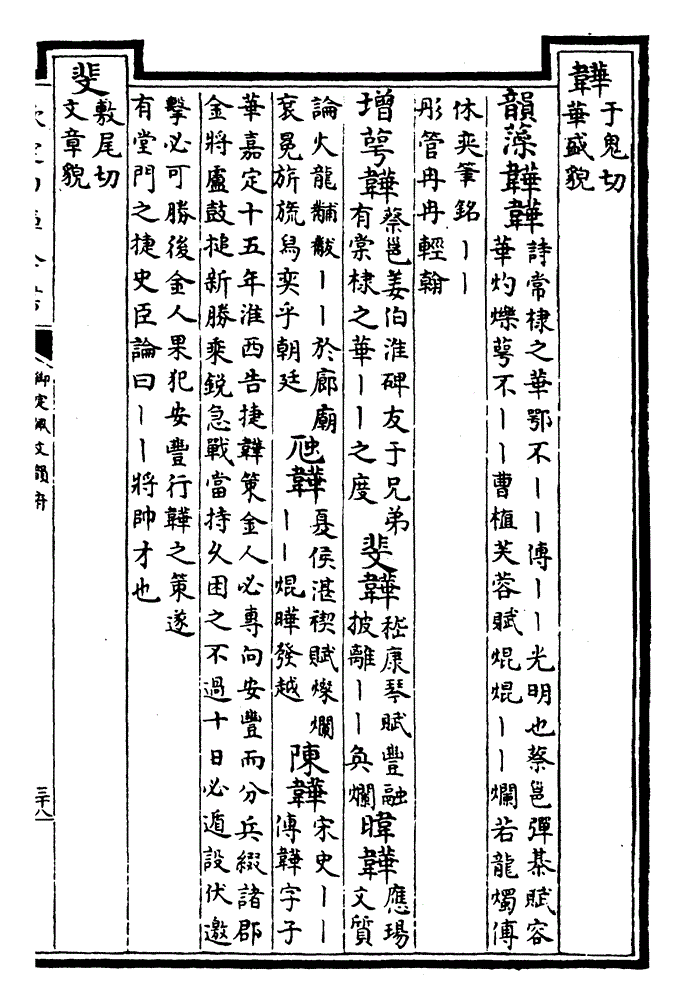 韡
于鬼切
華盛貌
韻藻韡韡
詩常棣之華鄂不丨丨傳丨丨光明也蔡邕彈棊賦容
華灼爍萼不丨丨曹植芙蓉賦焜焜丨丨爛若龍燭傅
休奕筆銘丨丨
彤管冉冉輕翰
增萼韡
蔡邕姜伯淮碑友于兄弟
有棠棣之華丨丨之度
斐韡
嵇康琴賦豐融
披離丨丨奐爛
暐韡
應瑒
文質
論火龍黼黻丨丨於廊廟
袞冕旂旒舄奕乎朝廷
虺韡
夏侯湛禊賦燦爛
丨丨焜曄發越
陳韡
宋史丨丨
傳韡字子
華嘉定十五年淮西告捷韡策金人必專向安豐而分兵綴諸郡
金將盧鼓搥新勝乘銳急戰當持久困之不過十日必遁設伏邀
擊必可勝後金人果犯安豐行韡之策遂
有堂門之捷史臣論曰丨丨將帥才也
斐
敷尾切
文章貌
欽定四庫全書
御定佩文韻府
三十八